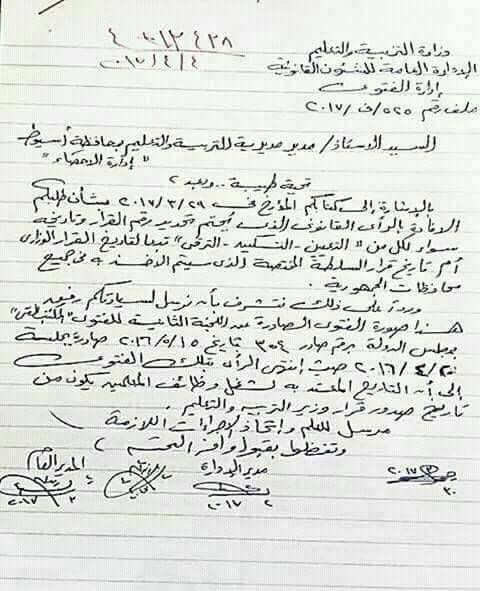 ٤٢٨
٢٠١٧/٤/٤
وزارة التربية والتعليم
الإدارة العامة للشئون القانونية
إدارة الفتوى
ملف رقم ٥٢٥/ف/٢٠١٧
السيد الاستاذ/ مدير مديرية التربية والتعليم بمحافظة أسيوط
" إدارة الاحصاء "
تحية طيبة .. وبعد ؟
بالإشارة إلى كتابكم المؤرخ فى ٢٠١٧/٣/٢٩ بشأن طلبكم
الافادة بالرأى القانونى الذى يحتم تحديد رقم القرار وتاريخه
سواء لكل من " التعيين - التسكين - الترقى " تبعا لتاريخ القرار الوزارى
أم تاريخ قرار السلطة المختصة الذى سيتم الاخذ به فى جميع
محافظات الجمهورية .
وردا على ذلك نتشرف بأن نرسل لسيادتكم رفيق
هذا صورة الفتوى الصادرة عن اللجنة الثانية للفتوى
بمجلس الدولة برقم صادر ٣٥٤ تاريخ ٢٠١٦/٥/١٥ صادرة بجلسة
٢٠١٦/٤/٢٠ حيث إنتهى الرأى بتلك الفتوى
إلى أن التاريخ المعتد به لشغل وظائف المعلمين يكون من
تاريخ صدور قرار وزير التربية والتعليم .
مرسل للعلم وإتخاذ الاجراءات اللازمة
وتفضلوا بقبول وافر التحية ؟
مدير الإدارة
المدير العام
٢٠١٧
٢٠١٧
٢٠١٧